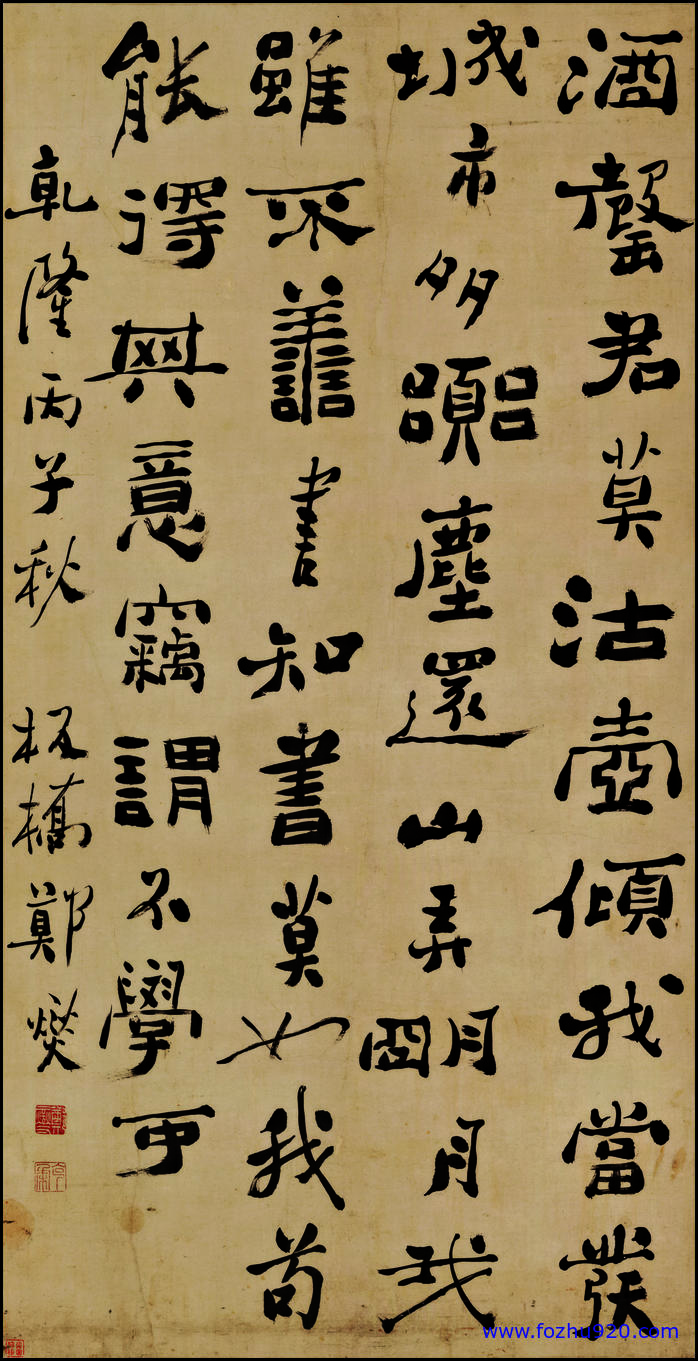 酒罄君莫沽壺傾我當發
城市多囂塵還山弄朙月我
雖不譱書知書莫如我苟
能得其意竊謂不學可
乾隆丙子秋 板橋鄭燮
www.fozhu920.com